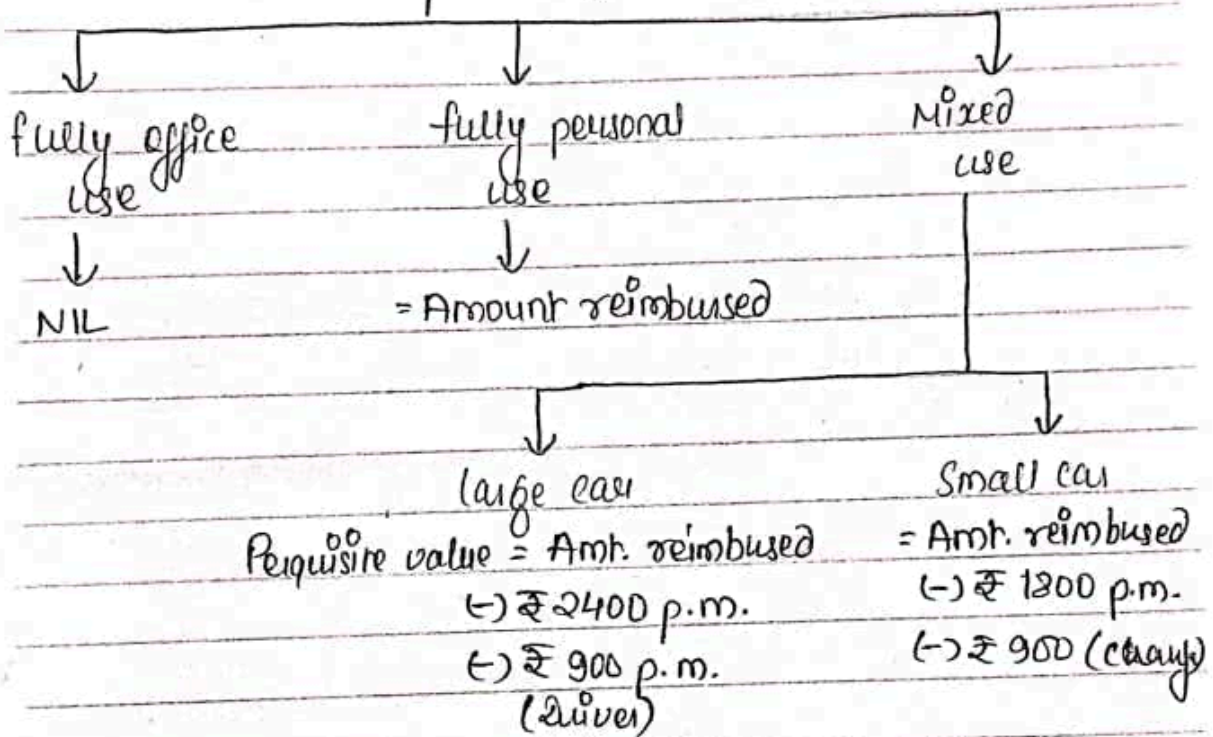 fully office
use
NIL
fully personal
use
= Amount reimbursed
Mixed
use
large car
Perquisite value = Amt. reimbused
(-) ₹ 2400 p.m.
(-) ₹ 900 p.m.
(Driver)
Small car
= Amt. reimbused
(-) ₹ 1800 p.m.
(-) ₹ 900